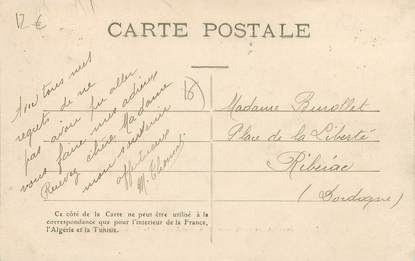 12 €
CARTE POSTALE
tous mes
regrets de ne
pas avoir pu aller
vous faire mes adieux
Recevez chère Madame
mon souvenir
affectueux
M.
Madame
Place de la Liberté
Ribérac
(Dordogne)
Ce côté de la Carte ne peut être utilisé à la
correspondance que pour l'intérieur de la France,
l'Algérie et la Tunisie.